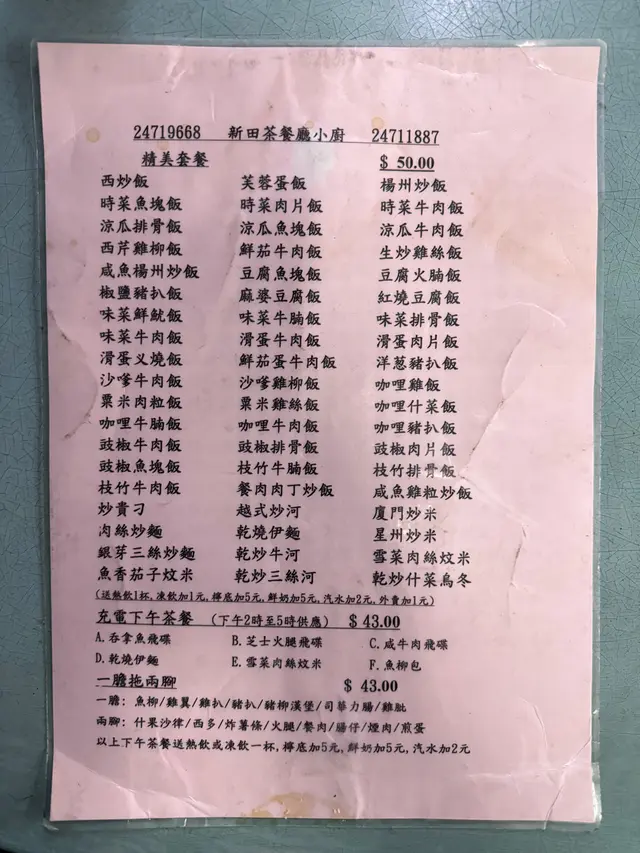 24719668 新田茶餐廳小廚 24711887
精美套餐 $ 50.00
西炒飯 芙蓉蛋飯 楊州炒飯
時菜魚塊飯 時菜肉片飯 時菜牛肉飯
涼瓜排骨飯 涼瓜魚塊飯 涼瓜牛肉飯
西芹雞柳飯 鮮茄牛肉飯 生炒雞絲飯
咸魚楊州炒飯 豆腐魚塊飯 豆腐火腩飯
椒鹽豬扒飯 麻婆豆腐飯 紅燒豆腐飯
味菜鮮魷飯 味菜牛腩飯 味菜排骨飯
味菜牛肉飯 滑蛋牛肉飯 滑蛋肉片飯
滑蛋义燒飯 鮮茄蛋牛肉飯 洋葱豬扒飯
沙嗲牛肉飯 沙嗲雞柳飯 咖哩雞飯
粟米肉粒飯 粟米雞絲飯 咖哩什菜飯
咖哩牛腩飯 咖哩牛肉飯 咖哩豬扒飯
豉椒牛肉飯 豉椒排骨飯 豉椒肉片飯
豉椒魚塊飯 枝竹牛腩飯 枝竹排骨飯
枝竹牛肉飯 餐肉肉丁炒飯 咸魚雞粒炒飯
炒貴刁 越式炒河 廈門炒米
肉絲炒麵 乾燒伊麵 星州炒米
銀芽三絲炒麵 乾炒牛河 雪菜肉絲炆米
魚香茄子炆米 乾炒三絲河 乾炒什菜烏冬
(送熱飲1杯,凍飲加1元,檸底加5元,鮮奶加5元,汽水加2元,外賣加1元)
充電下午茶餐 (下午2時至5時供應) $ 43.00
A.吞拿魚飛碟 B.芝士火腿飛碟 C.咸牛肉飛碟
D.乾燒伊麵 E.雪菜肉絲炆米 F.魚柳包
一膽拖兩腳 $ 43.00
一膽: 魚柳/雞翼/雞扒/豬扒/豬柳漢堡/司華力腸/雞髀
兩腳: 什果沙律/西多/炸薯條/火腿/餐肉/腸仔/煙肉/煎蛋
以上下午茶餐送熱飲或凍飲一杯,檸底加5元,鮮奶加5元,汽水加2元